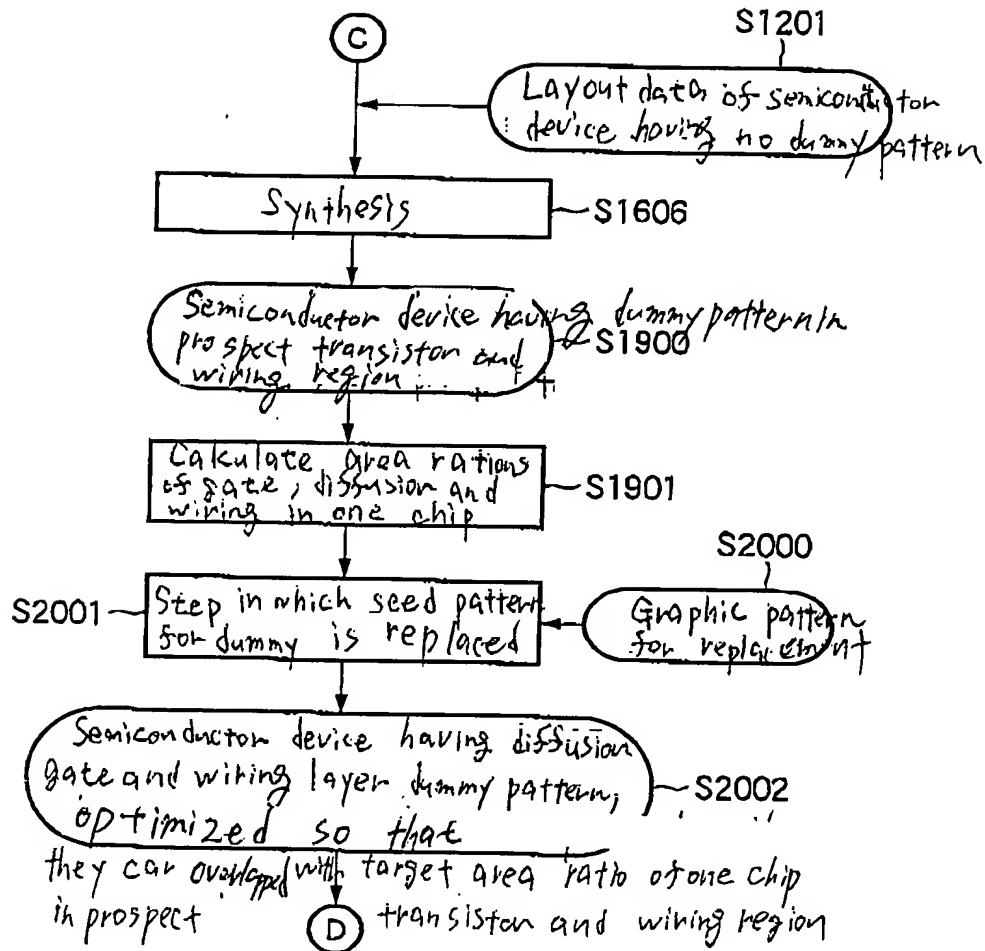 C
S1201
Layout data of semiconductor
device having no dummy pattern
Synthesis
S1606
Semiconductor device having dummy pattern in
prospect transistor and
S1900
wiring region
Calkulate area rations
of gate, diffusion and
wiring in one chip
S1901
S2000
S2001
Step in which seed pattern
for dummy is replaced
Graphic pattern
for replacement
Semiconductor device having diffusion
gate and wiring layer dummy pattern,
optimized so that
S2002
they car overlapped with target area ratio of one chip
in prospect transistor and wiring region
D